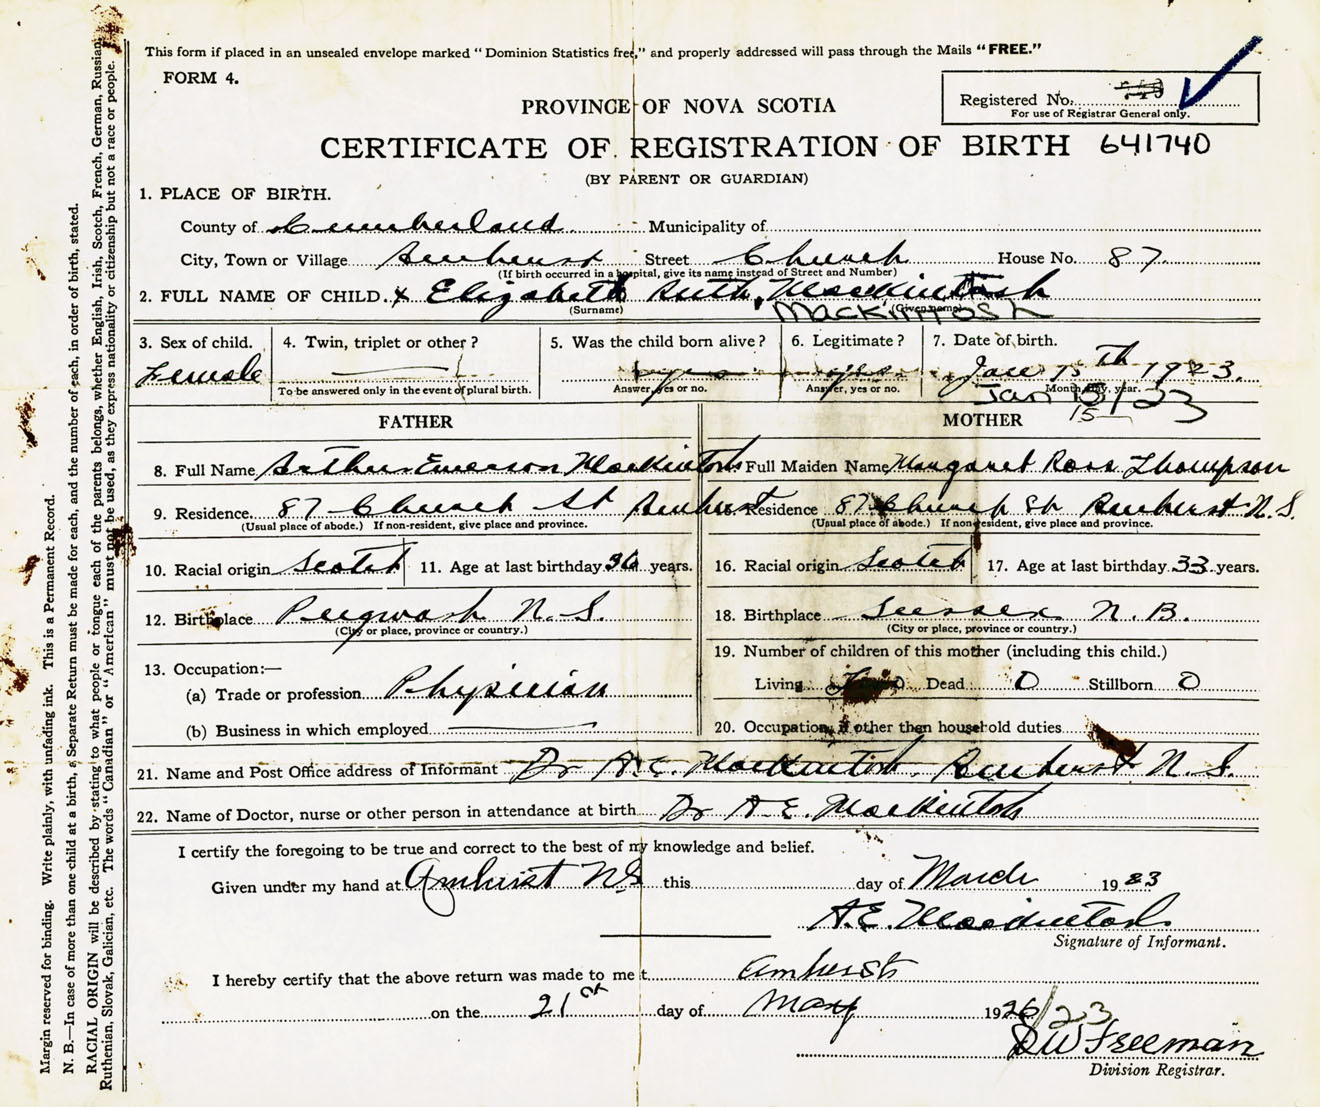 This form if placed in an unsealed envelope marked "Dominion Statistics free," and properly addressed will pass through the Mails "FREE."
FORM 4.
Registered No.
For use of Registrar General only.
PROVINCE OF NOVA SCOTIA
CERTIFICATE OF REGISTRATION OF BIRTH 641740
(BY PARENT OR GUARDIAN)
1. PLACE OF BIRTH.
County of Cumberland Municipality of
City, Town or Village Amherst Street Church House No. 87
(If birth occurred in a hospital, give its name instead of Street and Number)
2. FULL NAME OF CHILD. x Elizabeth Ruth Mackintosh
(Surname) (Given name)
Mackintosh
3. Sex of child. 4. Twin, triplet or other? 5. Was the child born alive? 6. Legitimate? 7. Date of birth.
Female yes yes Jan 15th 1923.
To be answered only in the event of plural birth. Answer, yes or no. Answer, yes or no. Month, day, year.
Jan 15/23
15
FATHER MOTHER
8. Full Name Arthur Emerson Mackintosh Full Maiden Name Margaret Ross Thompson
9. Residence. 87 Church St Amherst Residence 87 Church St Amherst N.S.
(Usual place of abode.) If non-resident, give place and province. (Usual place of abode.) If non-resident, give place and province.
10. Racial origin Scotch 11. Age at last birthday 36 years. 16. Racial origin Scotch 17. Age at last birthday 33 years.
12. Birthplace Pugwash N.S. 18. Birthplace Sussex N.B.
(City or place, province or country.) (City or place, province or country.)
13. Occupation:— 19. Number of children of this mother (including this child.)
(a) Trade or profession Physician Living Dead 0 Stillborn 0
(b) Business in which employed 20. Occupation, if other then household duties
21. Name and Post Office address of Informant Dr A.E. Mackintosh. Amherst N.S.
22. Name of Doctor, nurse or other person in attendance at birth Dr A E. Mackintosh
I certify the foregoing to be true and correct to the best of my knowledge and belief.
Given under my hand at Amherst NS this day of March 1923
A.E. Mackintosh
Signature of Informant.
I hereby certify that the above return was made to me t Amherst
on the 21st day of May 1926/23
DW Freeman
Division Registrar.
Margin reserved for binding. Write plainly, with unfading ink. This is a Permanent Record.
N. B.—In case of more than one child at a birth, a Separate Return must be made for each, and the number of each, in order of birth, stated.
RACIAL ORIGIN will be described by stating to what people or tongue each of the parents belongs, whether English, Irish, Scotch, French, German, Russian,
Ruthenian, Slovak, Galician, etc. The words "Canadian" or "American" must not be used, as they express nationality or citizenship but not a race or people.